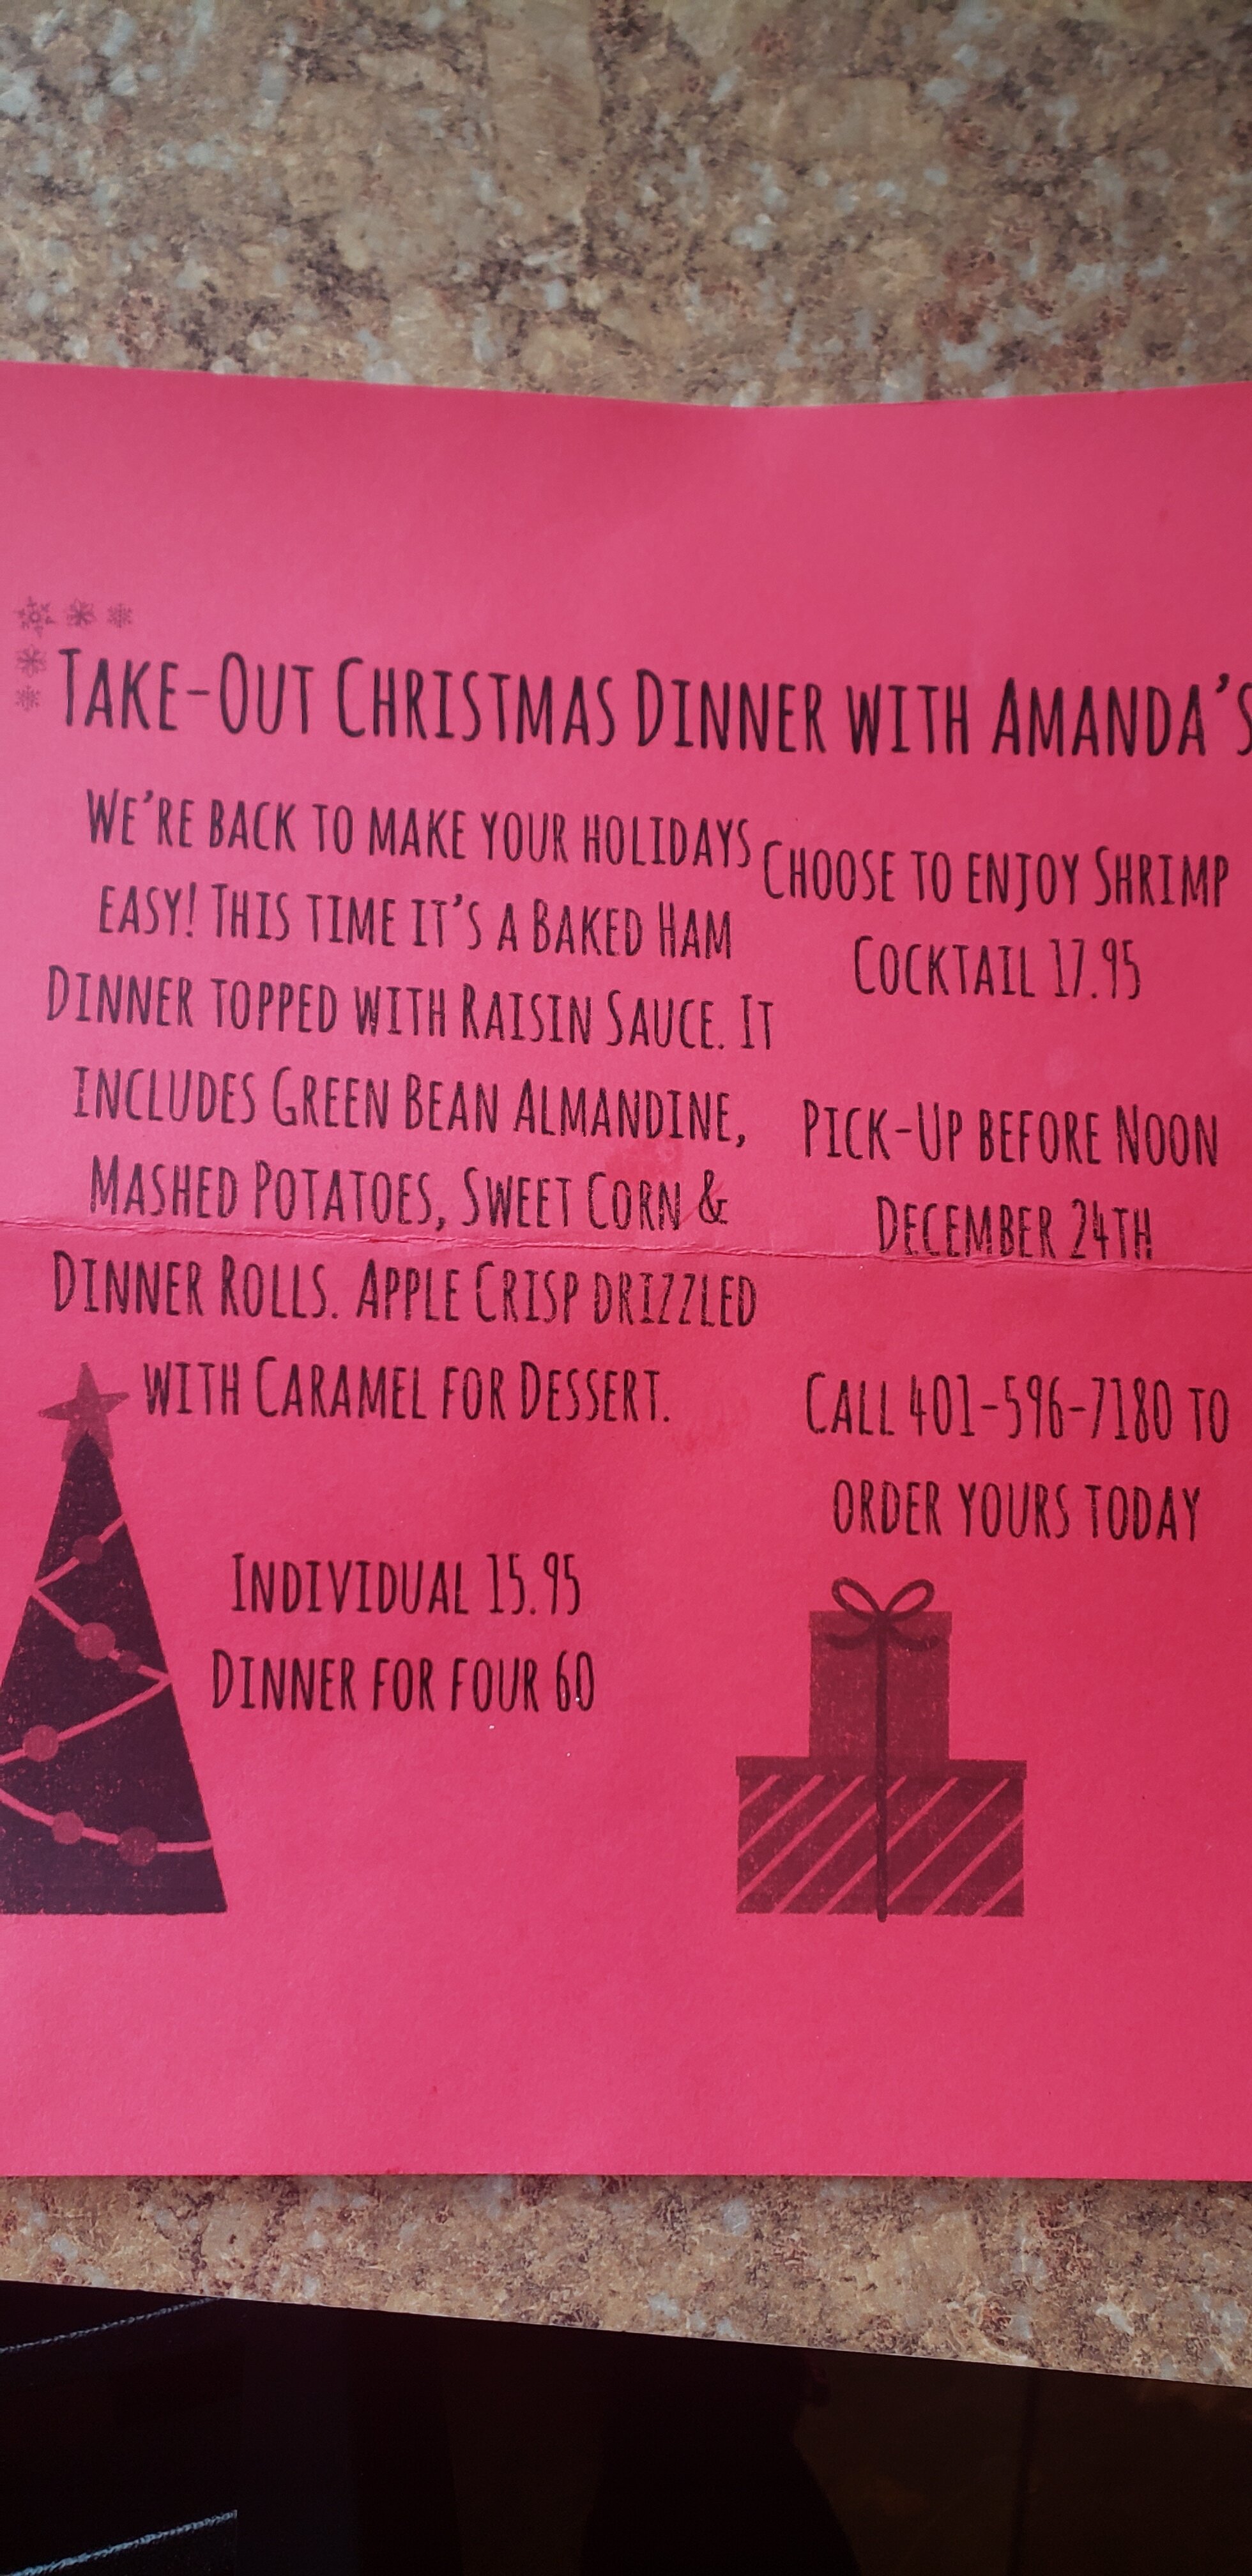 Take-Out Christmas Dinner with Amanda's
We're back to make your holidays
easy! This time it's a Baked Ham
Dinner topped with Raisin Sauce. It
includes Green Bean Almandine,
Mashed Potatoes, Sweet Corn &
Dinner Rolls. Apple Crisp drizzled
with Caramel for Dessert.
Individual 15.95
Dinner for four 60
Choose to enjoy Shrimp
Cocktail 17.95
Pick-Up before Noon
December 24th
Call 401-596-7180 to
order yours today